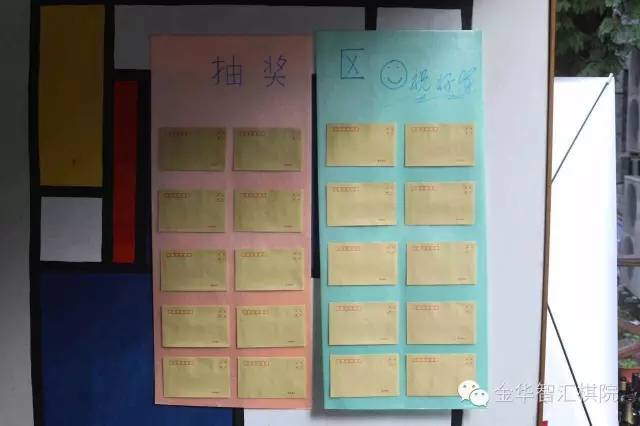 抽奖区
祝好运
金华智汇棋院